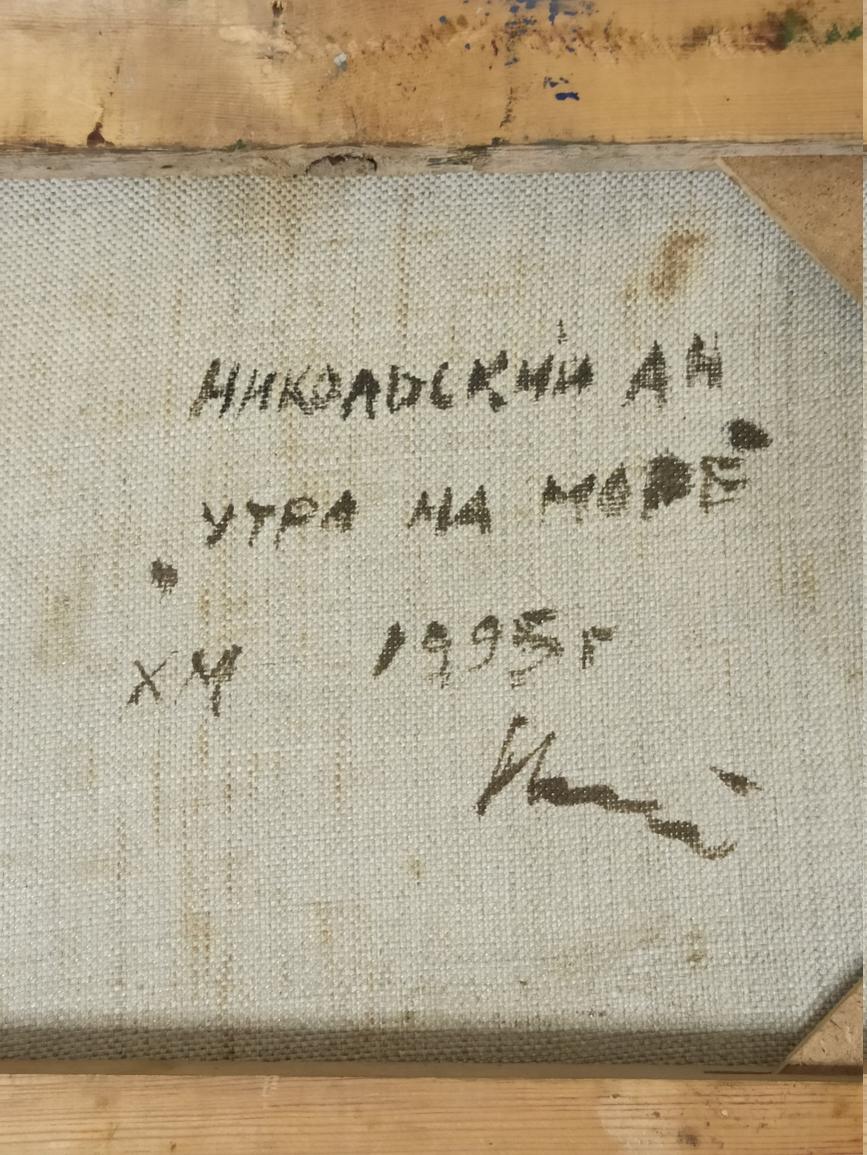 НИКОЛЬСКИЙ АН
УТРА НА МОРЕ
ХМ 1995 г